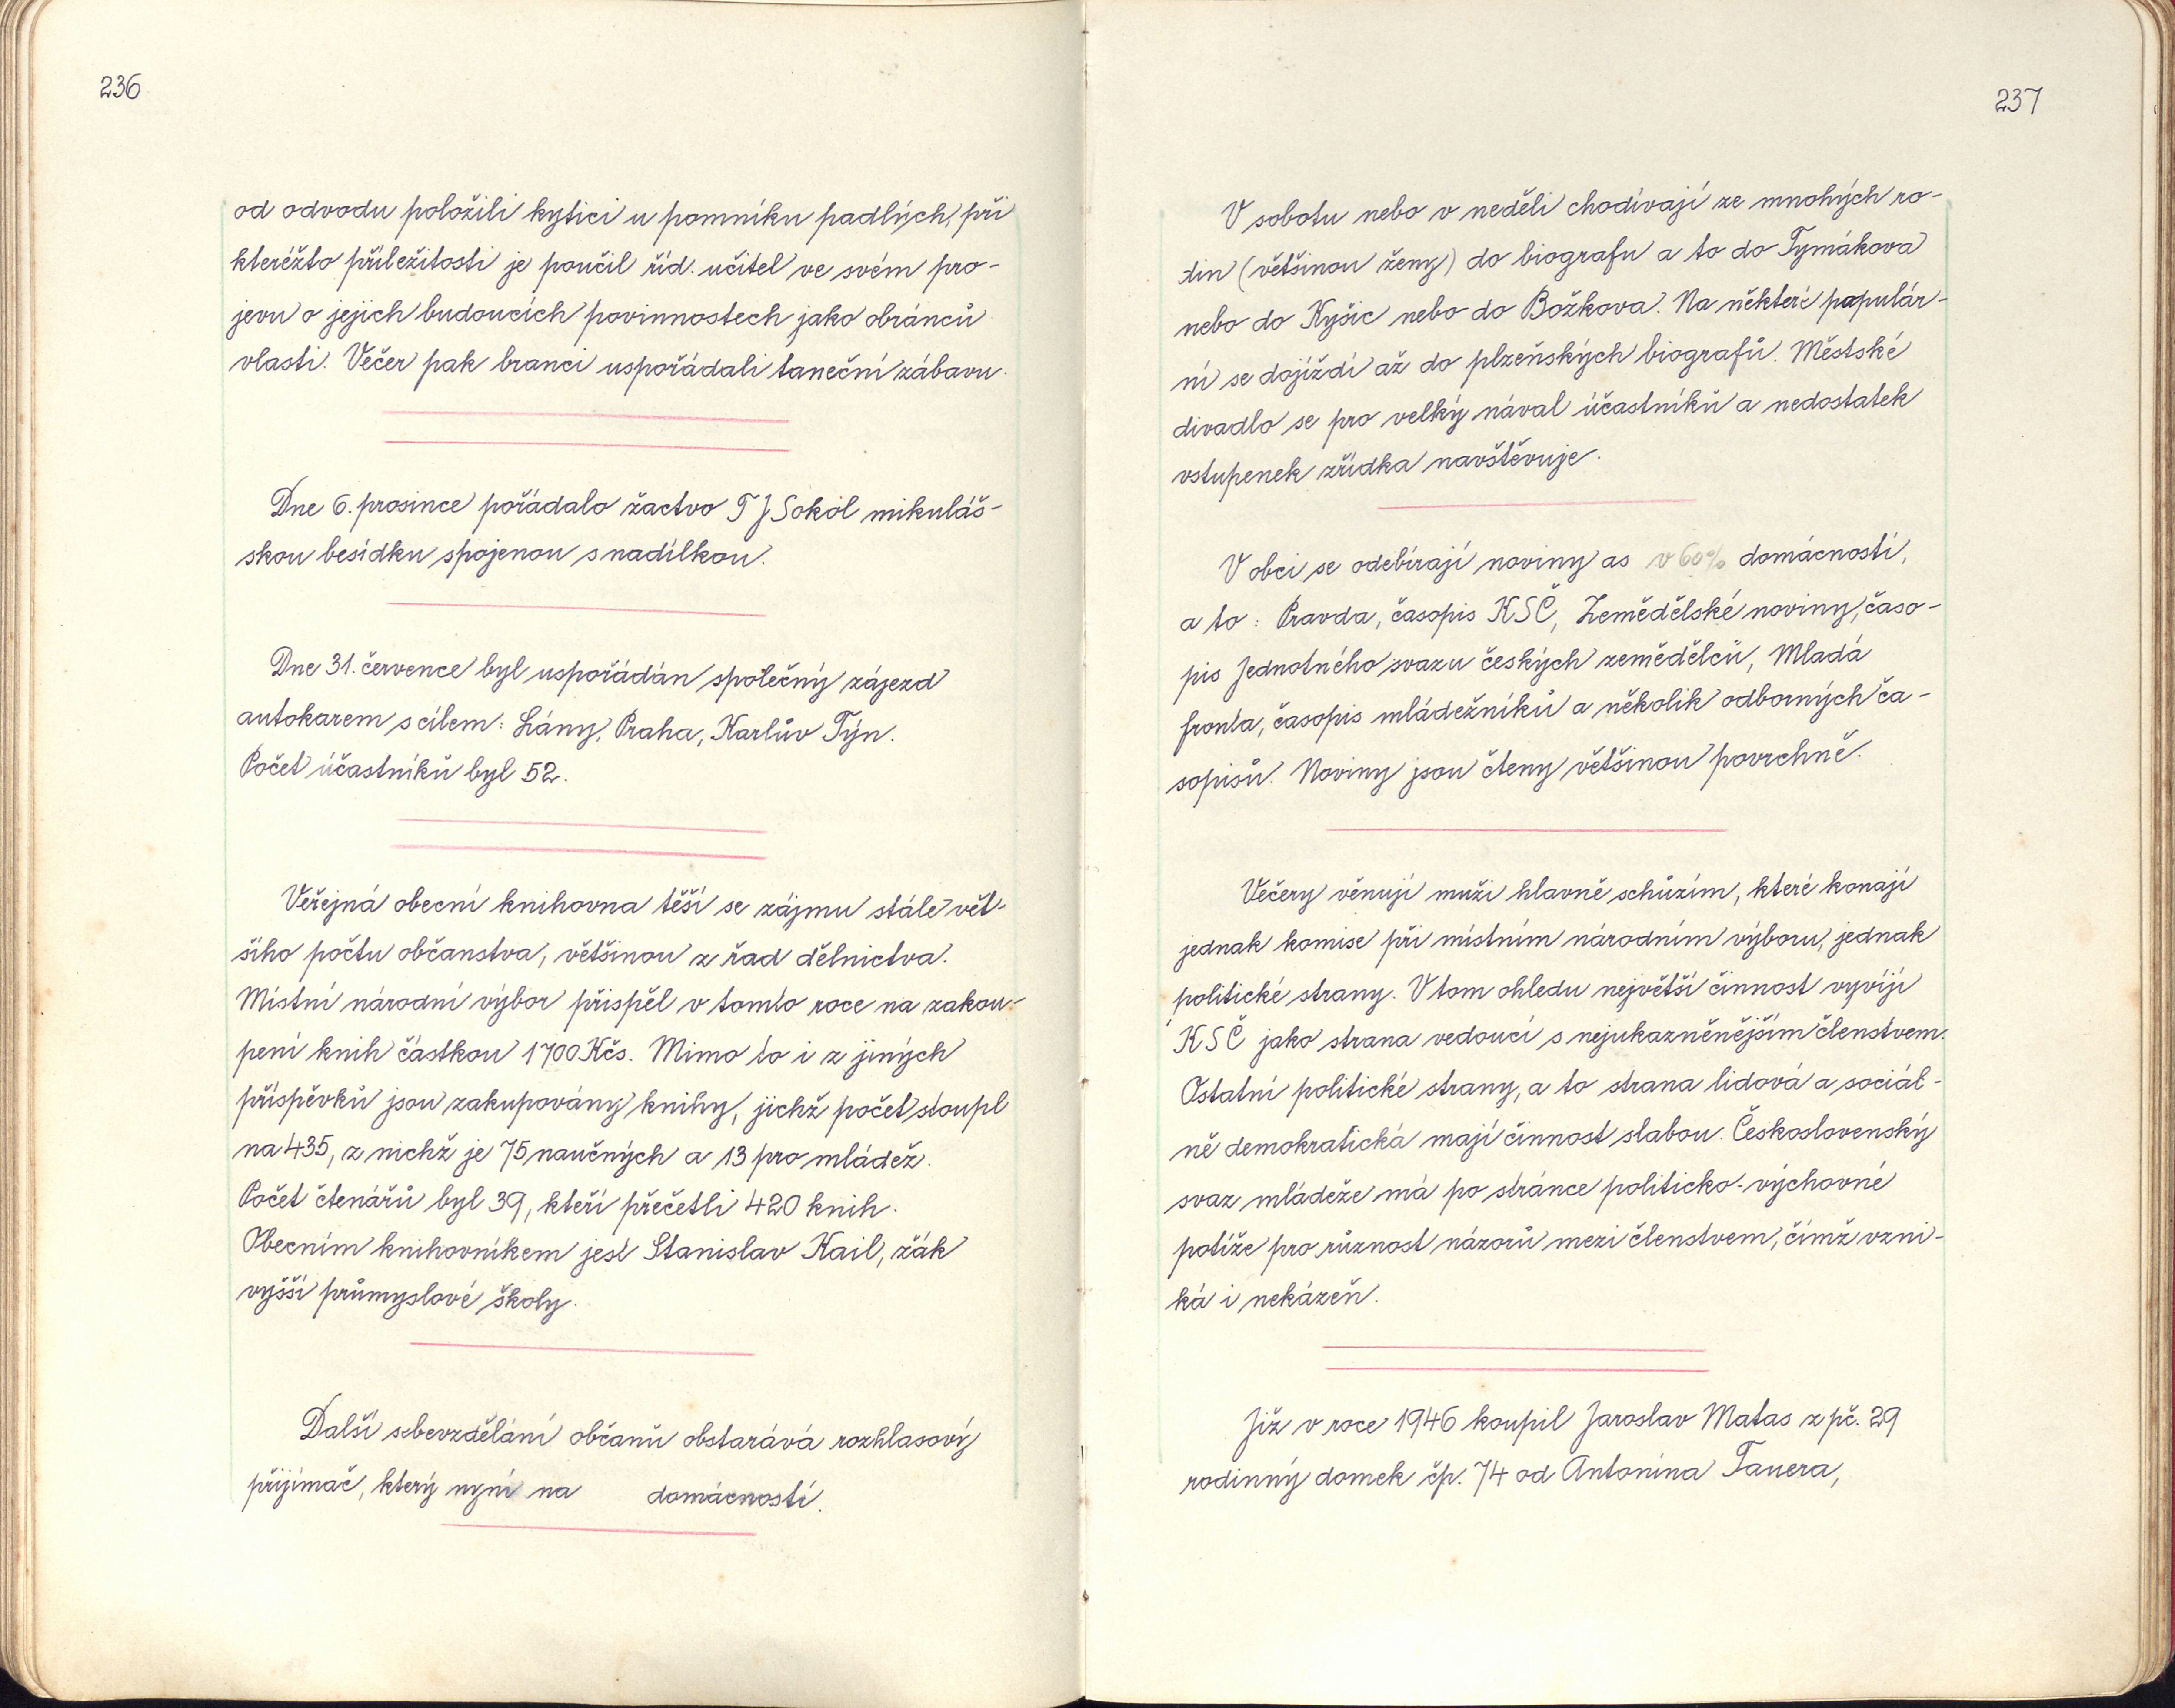 236
od odvodu položili kytici u pomníku padlých, při
kteréžto příležitosti je poučil říd. učitel ve svém pro-
jevu o jejich budoucích povinnostech jako obránců
vlasti. Večer pak branci uspořádali taneční zábavu.
Dne 6. prosince pořádalo žactvo T J Sokol mikuláš-
skou besídku spojenou s nadílkou.
Dne 31. července byl uspořádán společný zájezd
autokarem s cílem: Lány, Praha, Karlův Týn.
Počet účastníků byl 52.
Veřejná obecní knihovna těší se zájmu stále vět-
šího počtu občanstva, většinou z řad dělnictva.
Místní národní výbor přispěl v tomto roce na zakou-
pení knih částkou 1700 Kčs. Mimo to i z jiných
příspěvků jsou zakupovány knihy, jichž počet stoupl
na 435, z nichž je 75 naučných a 13 pro mládež.
Počet čtenářů byl 39, kteří přečetli 420 knih.
Obecním knihovníkem jest Stanislav Kail, žák
vyšší průmyslové školy.
Další sebevzdělání občanů obstarává rozhlasový
přijímač, který nyní na domácností.
237
V sobotu nebo v neděli chodívají ze mnohých ro-
din (většinou ženy) do biografu a to do Tymákova
nebo do Kyšic nebo do Božkova. Na některé papulár-
ní se dojíždí až do plzeňských biografů. Městské
divadlo se pro velký nával účastníků a nedostatek
vstupenek zřídka navštěvuje.
V obci se odebírají noviny as v 60% domácností,
a to: Pravda, časopis KSČ, Zemědělské noviny, časo-
pis Jednotného svazu českých zemědělců, Mladá
fronta, časopis mládežníků a několik odborných ča-
sopisů. Noviny jsou čteny většinou povrchně.
Večery věnují muži hlavně schůzím, které konají
jednak komise při místním národním výboru, jednak
politické strany. V tom ohledu největší činnost vyvíjí
KSČ jako strana vedoucí s nejukazněnějším členstvem.
Ostatní politické strany, a to strana lidová a sociál-
ně demokratická mají činnost slabou. Československý
svaz mládeže má po stránce politicko-výchovné
potíže pro různost názorů mezi členstvem, čímž vzni-
ká i nekázeň.
Již v roce 1946 koupil Jaroslav Matas z pč. 29
rodinný domek čp. 74 od Antonína Tauera,